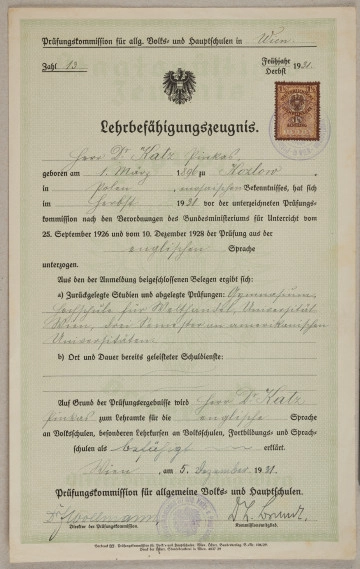 Prüfungskommission für allg. Volks- und Hauptschulen in Wien
Zahl 13
Frühjahr
Herbst 1931.
Lehrbefähigungszeugnis.
Herr Dr Katz Pinkas
geboren am 1. März 1896 zu Kozlow,
in Polen, mosaischen Bekenntnisses, hat sich
im Herbst 1931 vor der unterzeichneten Prüfungs-
kommission nach den Verordnungen des Bundesministeriums für Unterricht vom
25. September 1926 und vom 10. Dezember 1928 der Prüfung aus der
englischen Sprache
unterzogen.
Aus den der Anmeldung beigeschlossenen Belegen ergibt sich:
a) Zurückgelegte Studien und abgelegte Prüfungen: Gymnasium,
Hochschule für Welthandel, Universität
Wien, drei Semester an amerikanischen
Universitäten.
b) Ort und Dauer bereits geleisteter Schuldienste:
Auf Grund der Prüfungsergebnisse wird Herr Dr Katz
Pinkas zum Lehramte für die englische Sprache
an Volksschulen, besonderen Lehrkursen an Volksschulen, Fortbildungs- und Sprach-
schulen als befähigt erklärt.
Wien, am 5. Dezember 1931.
Prüfungskommission für allgemeine Volks- und Hauptschulen.
Direktor der Prüfungskommission.
Kommissionsmitglied.